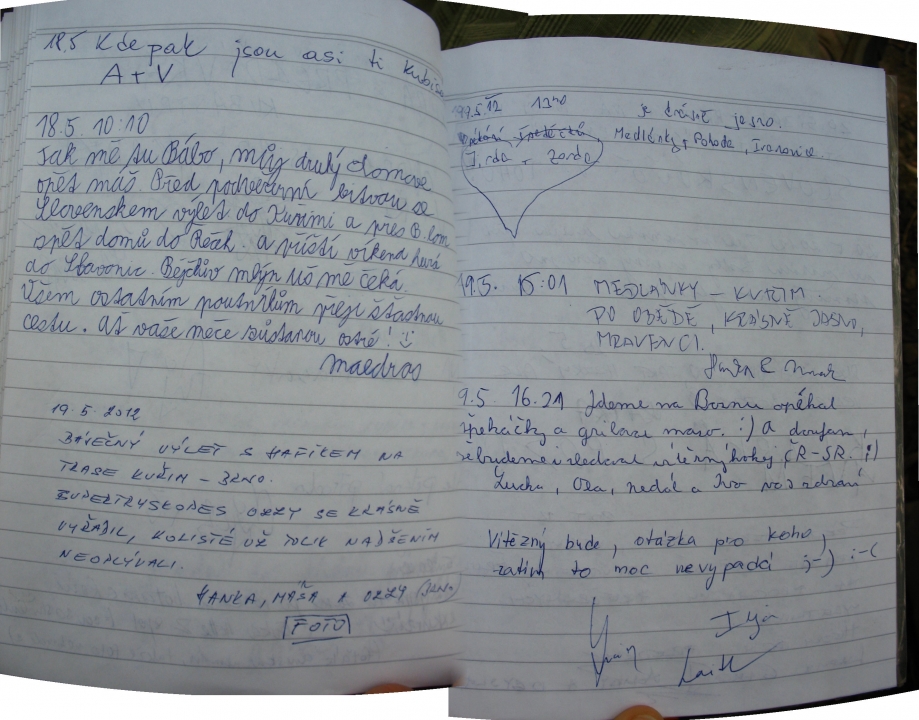 18.5 Kdepak jsou asi ti
A+V
18.5. 10:10
Jak mě tu Bábo, můj druhý domove
opět máš. Před podvečerní bitvou se
Slovenskem výlet do Kuřimi a přes B.
opět domů do Řečk. a příští víkend hurá
do Slavonic. Bejčkův mlýn už mě čeká.
Všem ostatním poutníkům přeji šťastnou
cestu. Ať vaše meče zůstanou ostré! :)
Maedros
19.5.2012
BÁJEČNÝ VÝLET S HAFÍKEM NA
TRASE KUŘIM - BRNO.
SUPERTRYSKOPES OZZY SE KRÁSNĚ
VYŘÁDIL, KOLISTÉ UŽ TOLIK NADŠENÍM
NEOPLÝVALI.
HANKA, MÁŠA A OZZY (BRNO)
FOTO
19.5.12 je krásně jasno.
Medlánky, Pohoda, Ivanovice
Jirda - Zanda
19.5. 15:01 MEDLÁNKY - KUŘIM.
PO OBĚDĚ, KRÁSNĚ JASNO,
MRAVENCI.
9.5 16.21 Jdeme na Baranu opékat
špekáčky a grilovat maso. :) A doufam,
že budeme i sledovat vítězný hokej ČR-SR. ;)
Lucka, Ota, nedál a Ivo vás zdraví
Vítězný bude, otázka pro koho,
zatím to moc nevypadá ;-) :-(